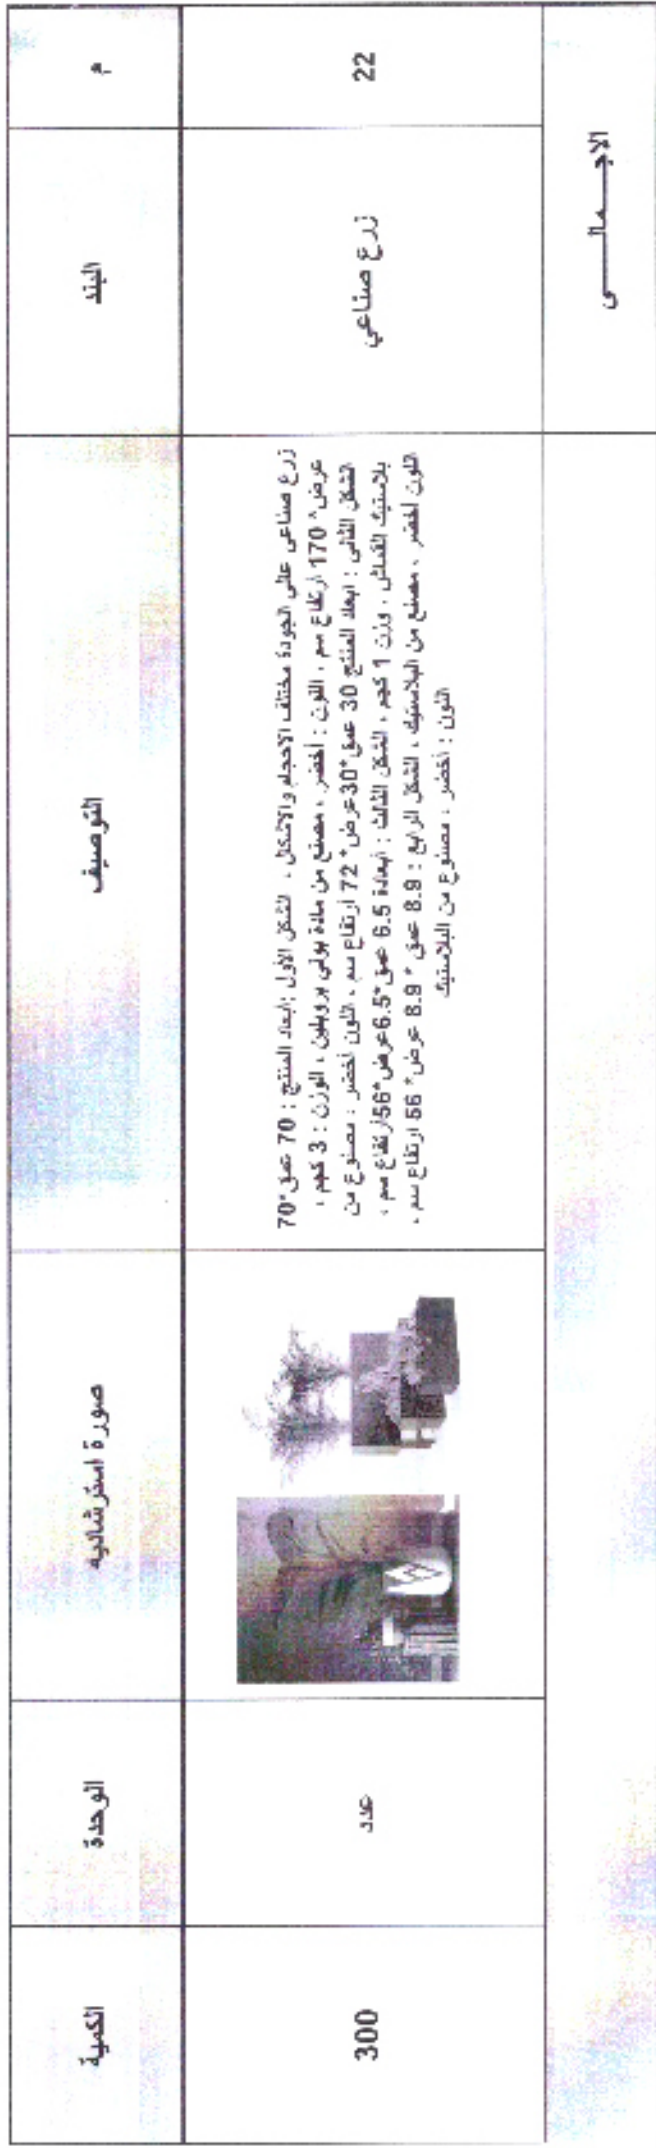 م
البند
التوصيف
صورة استرشاديه
الوحدة
الكمية
22
زرع صناعي
زرع صناعى عالى الجودة مختلف الاحجام والاشكال ، الشكل الأول :ابعاد المنتج : 70 عمق*70
عرض* 170 ارتفاع سم ، اللون : أخضر ، مصنع من مادة بولي بروبيلين ، الوزن : 3 كجم ،
الشكل الثانى : ابعاد المنتج 30 عمق*30عرض* 72 ارتفاع سم ، اللون اخضر : مصنوع من
بلاستيك القماش ، وزن 1 كجم ، الشكل الثالث : أبعادة 6.5 عمق*6.5عرض*56ارتفاع سم ،
اللون اخضر ، مصنع من البلاستيك ، الشكل الرابع : 8.9 عمق * 8.9 عرض* 56 ارتفاع سم ،
اللون : أخضر ، مصنوع من البلاستيك
عدد
300
الاجــــمالــــــى